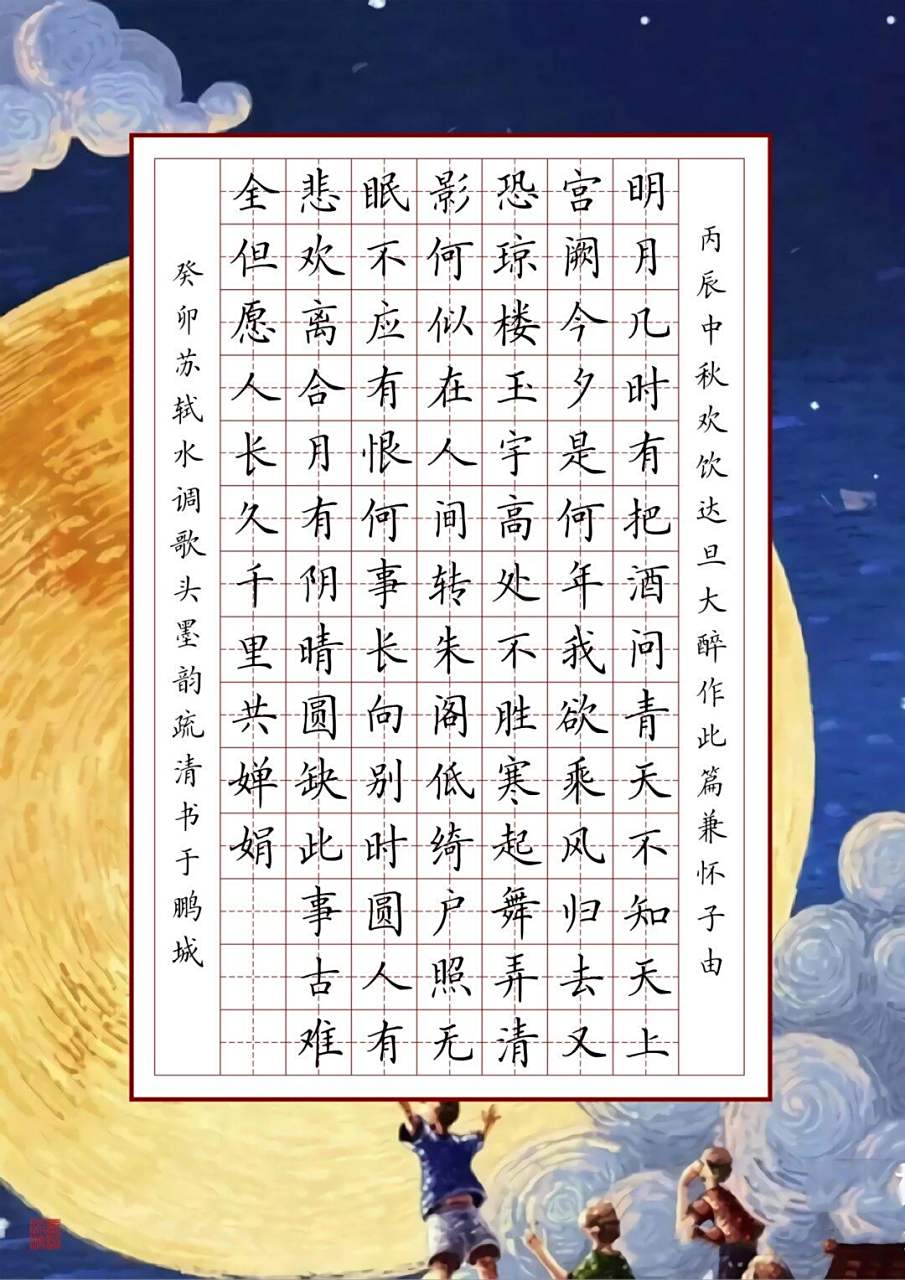 丙辰中秋欢饮达旦大醉作此篇兼怀子由
明月几时有把酒问青天不知天上
宫阙今夕是何年我欲乘风归去又
恐琼楼玉宇高处不胜寒起舞弄清
影何似在人间转朱阁低绮户照无
眠不应有恨何事长向别时圆人有
悲欢离合月有阴晴圆缺此事古难
全但愿人长久千里共婵娟
癸卯苏轼水调歌头墨韵疏清书于鹏城